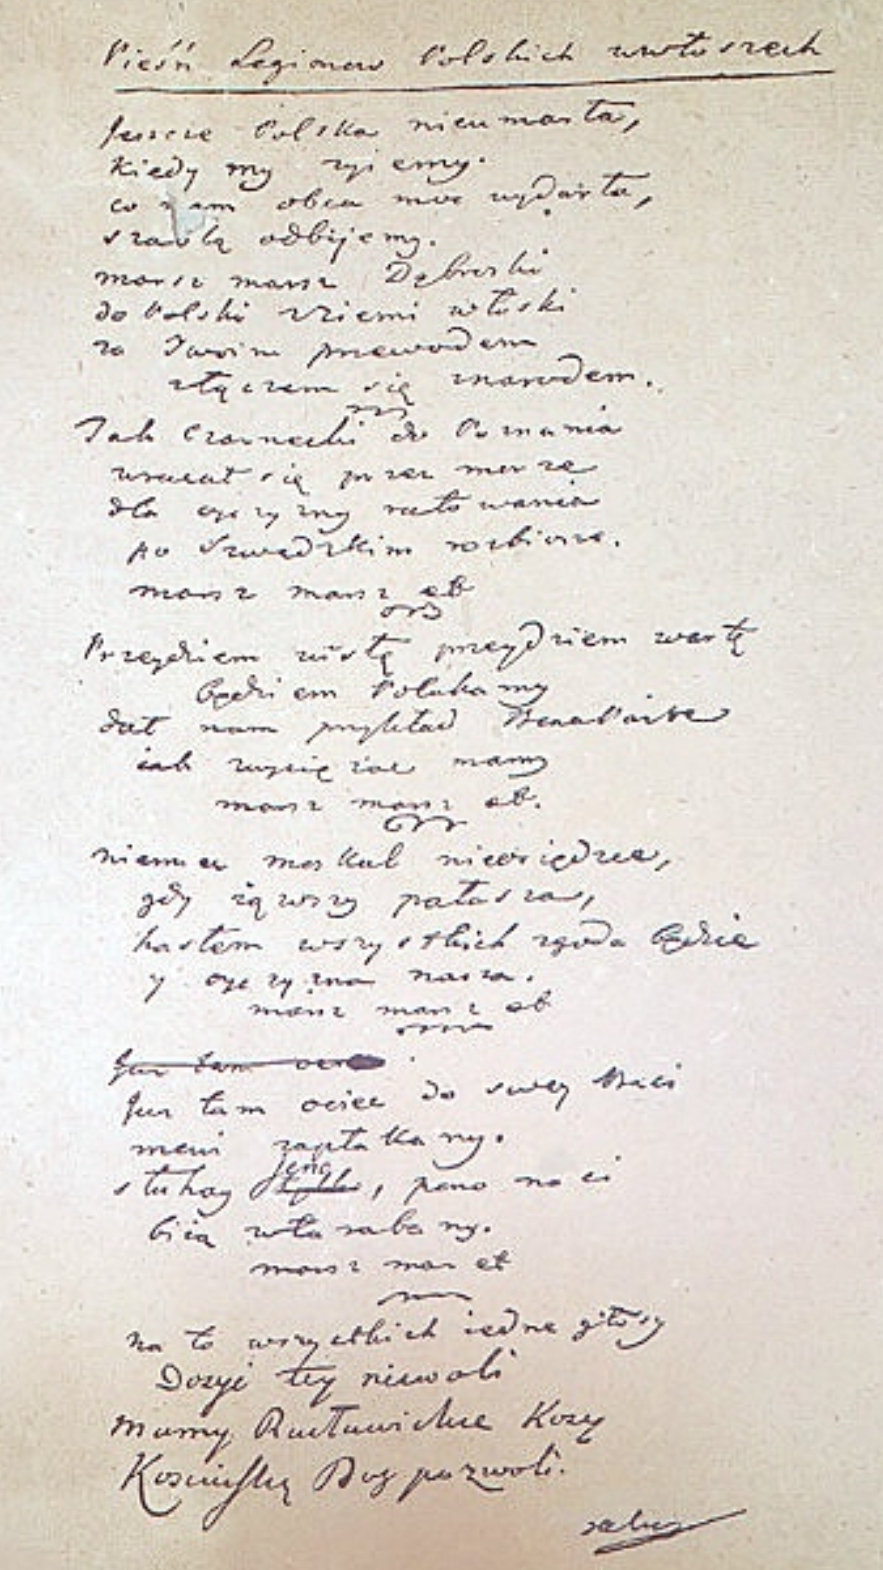 Pieśń Legionow Polskich wewłoszech
Jeszcze Polska nieumarła,
kiedy my zyiemy.
co nam obca moc wydarła,
szablą odbijemy.
marsz marsz Dąbroski
do Polski zziemi włoski
za Twoim przewodem
złączem się znarodem.
Jak Czarnecki do Poznania
wracał się przez morze
dla oyczyzny ratowania
po Szwedzkim rozbiorze.
marsz marsz et
Przeydziem wisłę przeydziem wartę
będziem Polakamy
dał nam przykład Bonaparte
iak zwycięzac mamy
marsz marsz et.
niemiec moskal nieosiędzie,
gdy iąwszy pałasza,
hasłem wszystkich zgoda będzie
y oyczyzna nasza.
marsz marsz et
Juz tam ociec
Juz tam ociec do swey Basi
mowi zapłakany.
słuhay jeno, pono nasi
bią wtarabany.
marsz mar et
na to wszystkich iedne głosy
Dosyć tey niewoli
mamy Racławickie Kosy
Kosciuszkę Bog pozwoli.